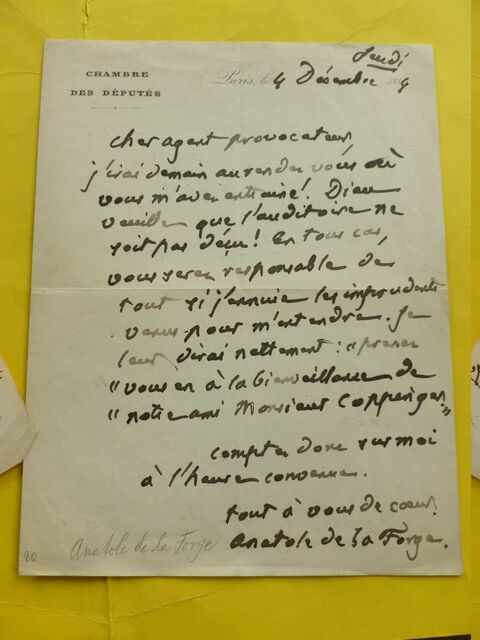 Jeudi
CHAMBRE
DES DÉPUTÉS
Paris, le 4 Décembre 1884
cher agent provocateur
j'irai demain au rendez vous où
vous m'avez entrainé! Dieu
veuille que l'auditoire ne
soit pas déçu! En tous cas,
vous serez responsable de
tout si j'ennuie les imprudents
venus pour m'entendre. Je
leur dirai nettement : "prenez
"vous en à la bienveillance de
"notre ami Monsieur Coppinger."
comptez donc sur moi
à l'heure convenue.
tout à vous de cœur.
Anatole de la Forge.
20 Anatole de la Forge